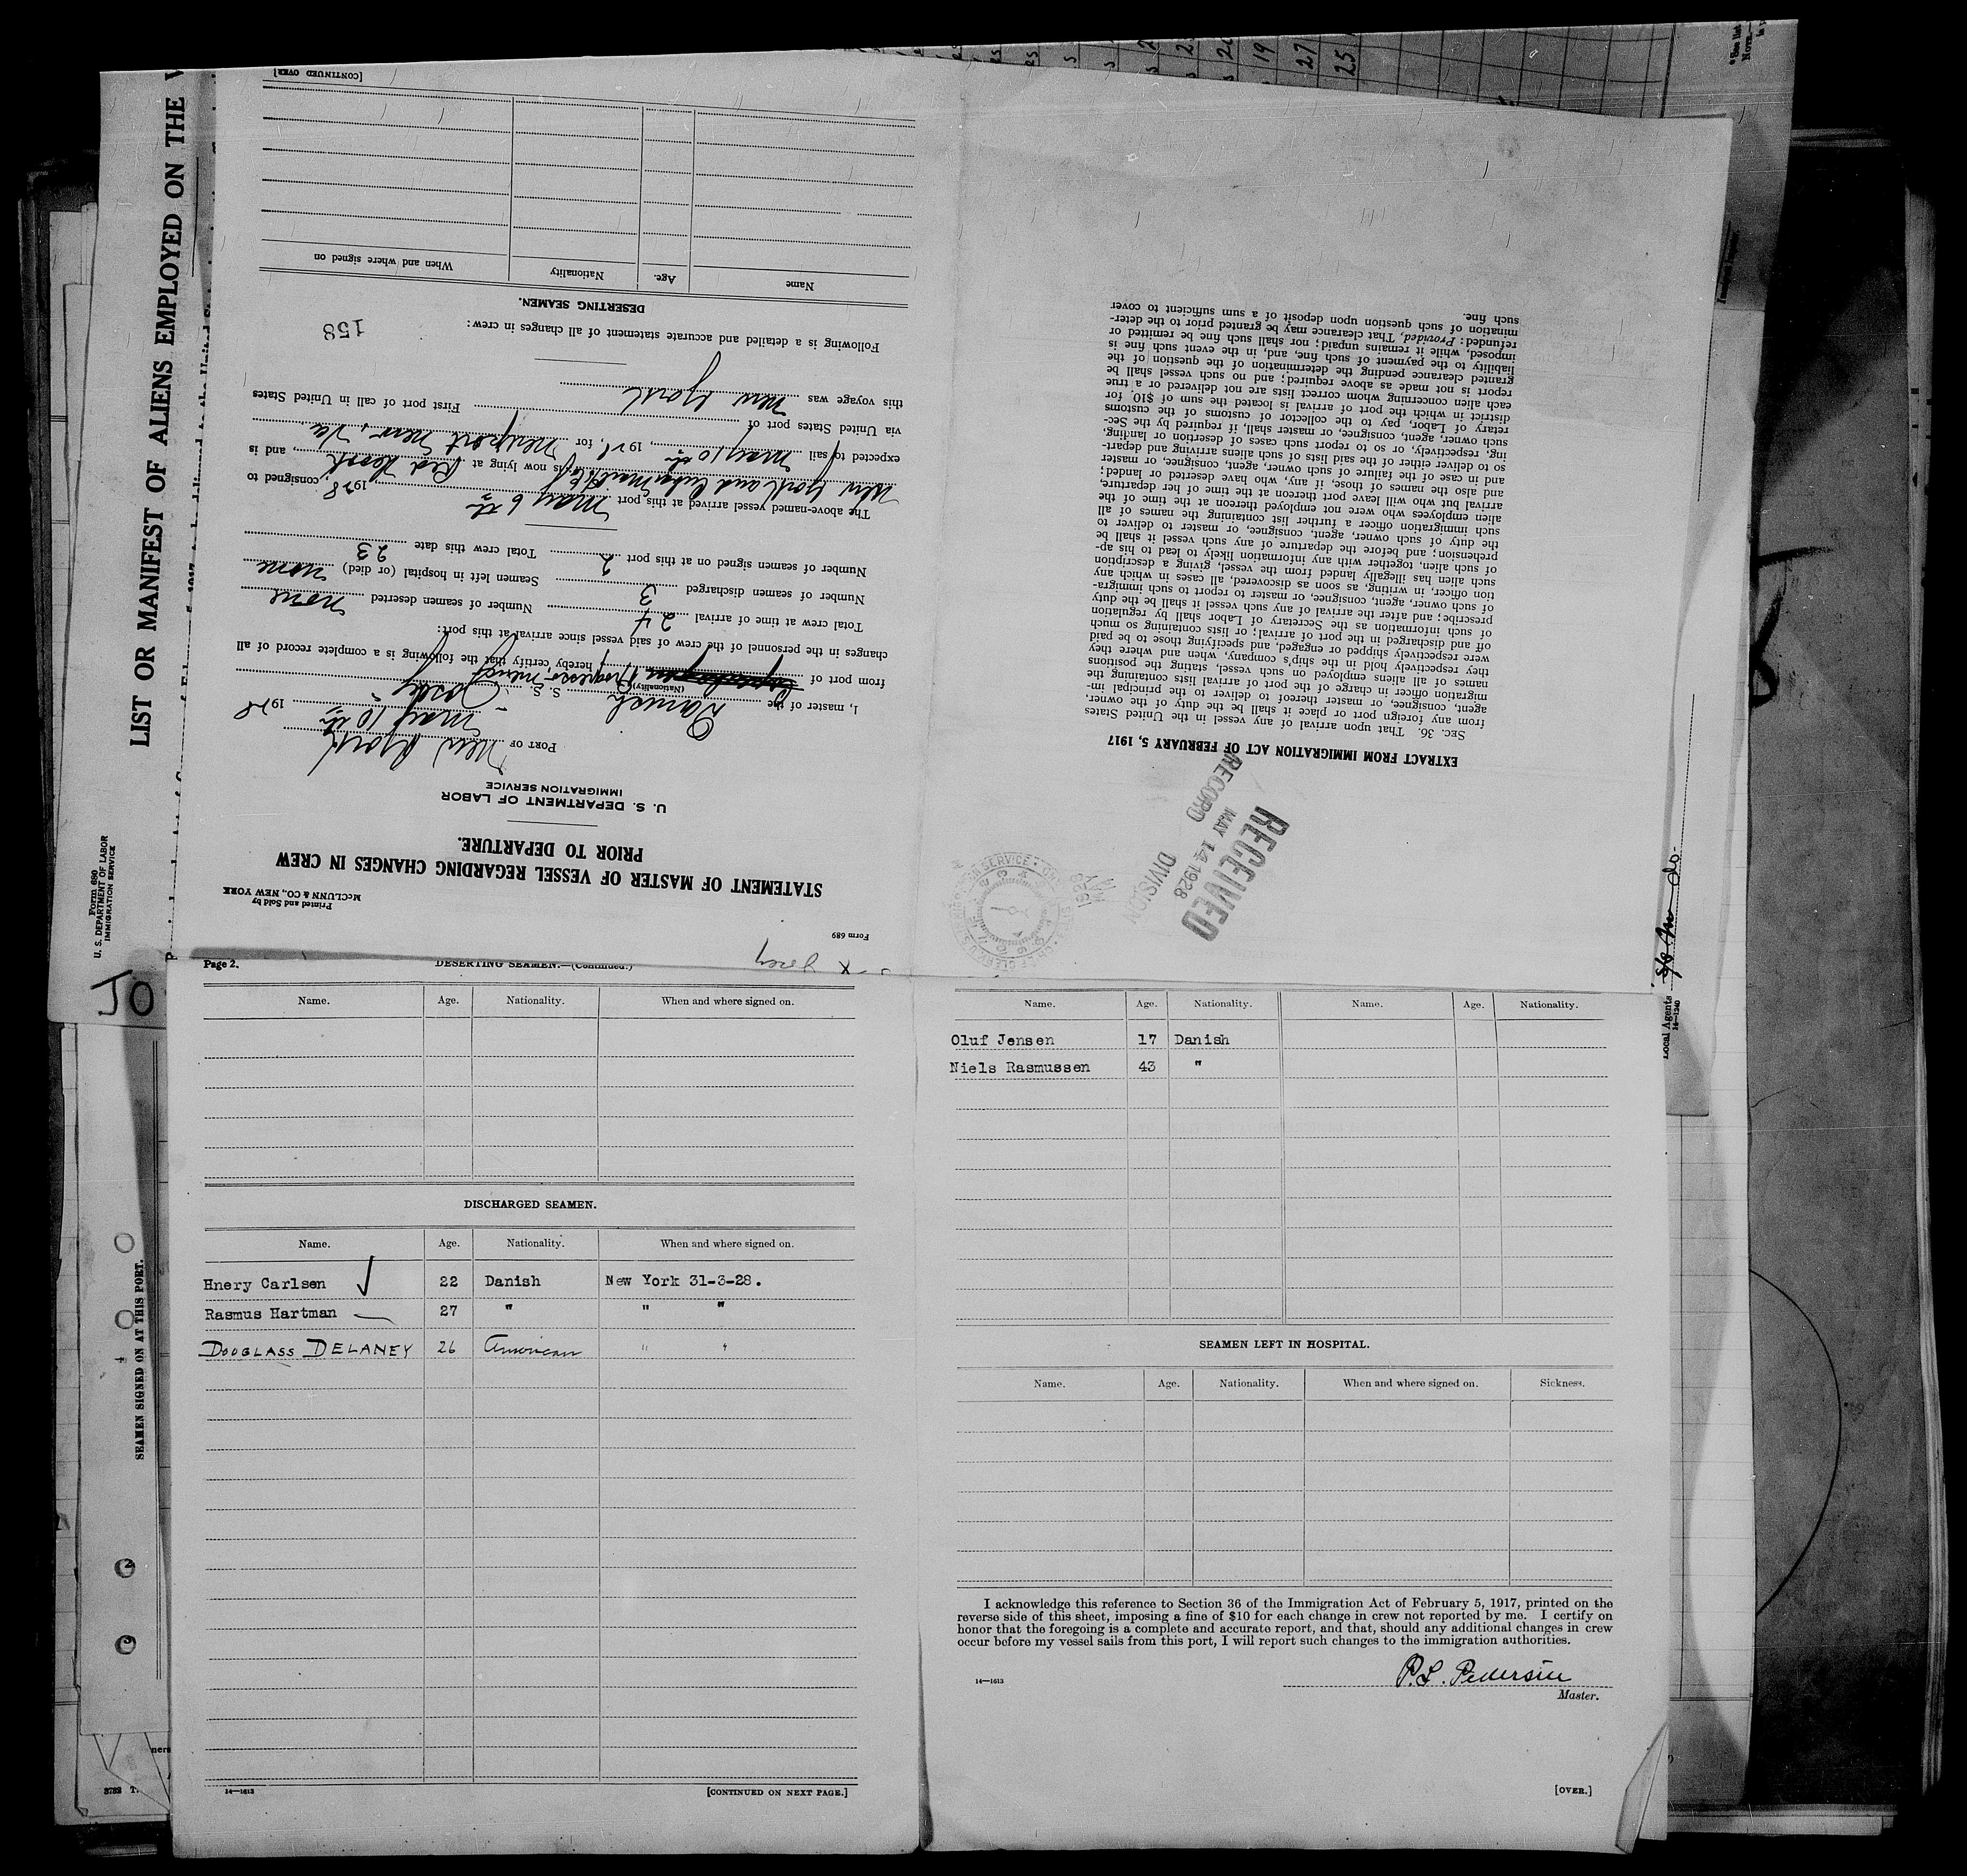 LIST OR MANIFEST OF ALIENS EMPLOYED ON THE
Form 680
U. S. DEPARTMENT OF LABOR
IMMIGRATION SERVICE
JO
Form 689
Printed and Sold by
McCLUNN & CO., NEW YORK
STATEMENT OF MASTER OF VESSEL REGARDING CHANGES IN CREW
PRIOR TO DEPARTURE.
U. S. DEPARTMENT OF LABOR
IMMIGRATION SERVICE
PORT OF New York
May 10th 1928
I, master of the Danish S. S.
(Nationality)
from port of Progreso hereby certify that the following is a complete record of all
changes in the personnel of the crew of said vessel since arrival at this port:
Total crew at time of arrival 24 Number of seamen deserted none
Number of seamen discharged 3 Seamen left in hospital (or died) none
Number of seamen signed on at this port 2 Total crew this date 23
The above-named vessel arrived at this port May 6th 1928, consigned to
New York and Cuba Mail now lying at Red Hook, and is
expected to sail May 10th, 1928, for Newport News, Va.
via United States port of First port of call in United States
this voyage was New York
Following is a detailed and accurate statement of all changes in crew:
158
DESERTING SEAMEN.
Name Age. Nationality When and where signed on
[CONTINUED OVER]
RECEIVED
MAY 14 1928
RECORD DIVISION
EXTRACT FROM IMMIGRATION ACT OF FEBRUARY 5, 1917
SEC. 36. That upon arrival of any vessel in the United States
from any foreign port or place it shall be the duty of the owner,
agent, consignee, or master thereof to deliver to the principal im-
migration officer in charge of the port of arrival lists containing the
names of all aliens employed on such vessel, stating the positions
they respectively hold in the ship's company, when and where they
were respectively shipped or engaged, and specifying those to be paid
off and discharged in the port of arrival; or lists containing so much
of such information as the Secretary of Labor shall by regulation
prescribe; and after the arrival of any such vessel it shall be the duty
of such owner, agent, consignee, or master to report to such immigra-
tion officer, in writing, as soon as discovered, all cases in which any
such alien has illegally landed from the vessel, giving a description
of such alien, together with any information likely to lead to his ap-
prehension; and before the departure of any such vessel it shall be
the duty of such owner, agent, consignee, or master to deliver to
such immigration officer a further list containing the names of all
alien employees who were not employed thereon at the time of the
arrival but who will leave port thereon at the time of her departure,
and also the names of those, if any, who have deserted or landed;
and in case of the failure of such owner, agent, consignee, or master
so to deliver either of the said lists of such aliens arriving and depart-
ing, respectively, or so to report such cases of desertion or landing,
such owner, agent, consignee, or master, shall, if required by the Sec-
retary of Labor, pay to the collector of customs of the customs
district in which the port of arrival is located the sum of $10 for
each alien concerning whom correct lists are not delivered or a true
report is not made as above required; and no such vessel shall be
granted clearance pending the determination of the question of the
liability to the payment of such fine, and, in the event such fine is
imposed, while it remains unpaid; nor shall such fine be remitted or
refunded: Provided, That clearance may be granted prior to the deter-
mination of such question upon deposit of a sum sufficient to cover
such fine.
Page 2. DESERTING SEAMEN.—(Continued.)
Name. Age. Nationality. When and where signed on.
DISCHARGED SEAMEN.
Name. Age. Nationality. When and where signed on.
Hnery Carlsen 22 Danish New York 31-3-28.
Rasmus Hartman 27 " " "
DOUGLASS DELANEY 26 American " "
14—1613 [CONTINUED ON NEXT PAGE.]
Name. Age. Nationality. Name. Age. Nationality.
Oluf Jensen 17 Danish
Niels Rasmussen 43 "
SEAMEN LEFT IN HOSPITAL.
Name. Age. Nationality. When and where signed on. Sickness.
I acknowledge this reference to Section 36 of the Immigration Act of February 5, 1917, printed on the
reverse side of this sheet, imposing a fine of $10 for each change in crew not reported by me. I certify on
honor that the foregoing is a complete and accurate report, and that, should any additional changes in crew
occur before my vessel sails from this port, I will report such changes to the immigration authorities.
P.L. Pedersen
14—1613
Master.
[OVER.]
SEAMEN SIGNED ON AT THIS PORT.
Local Agents
14—1240
19
27
25